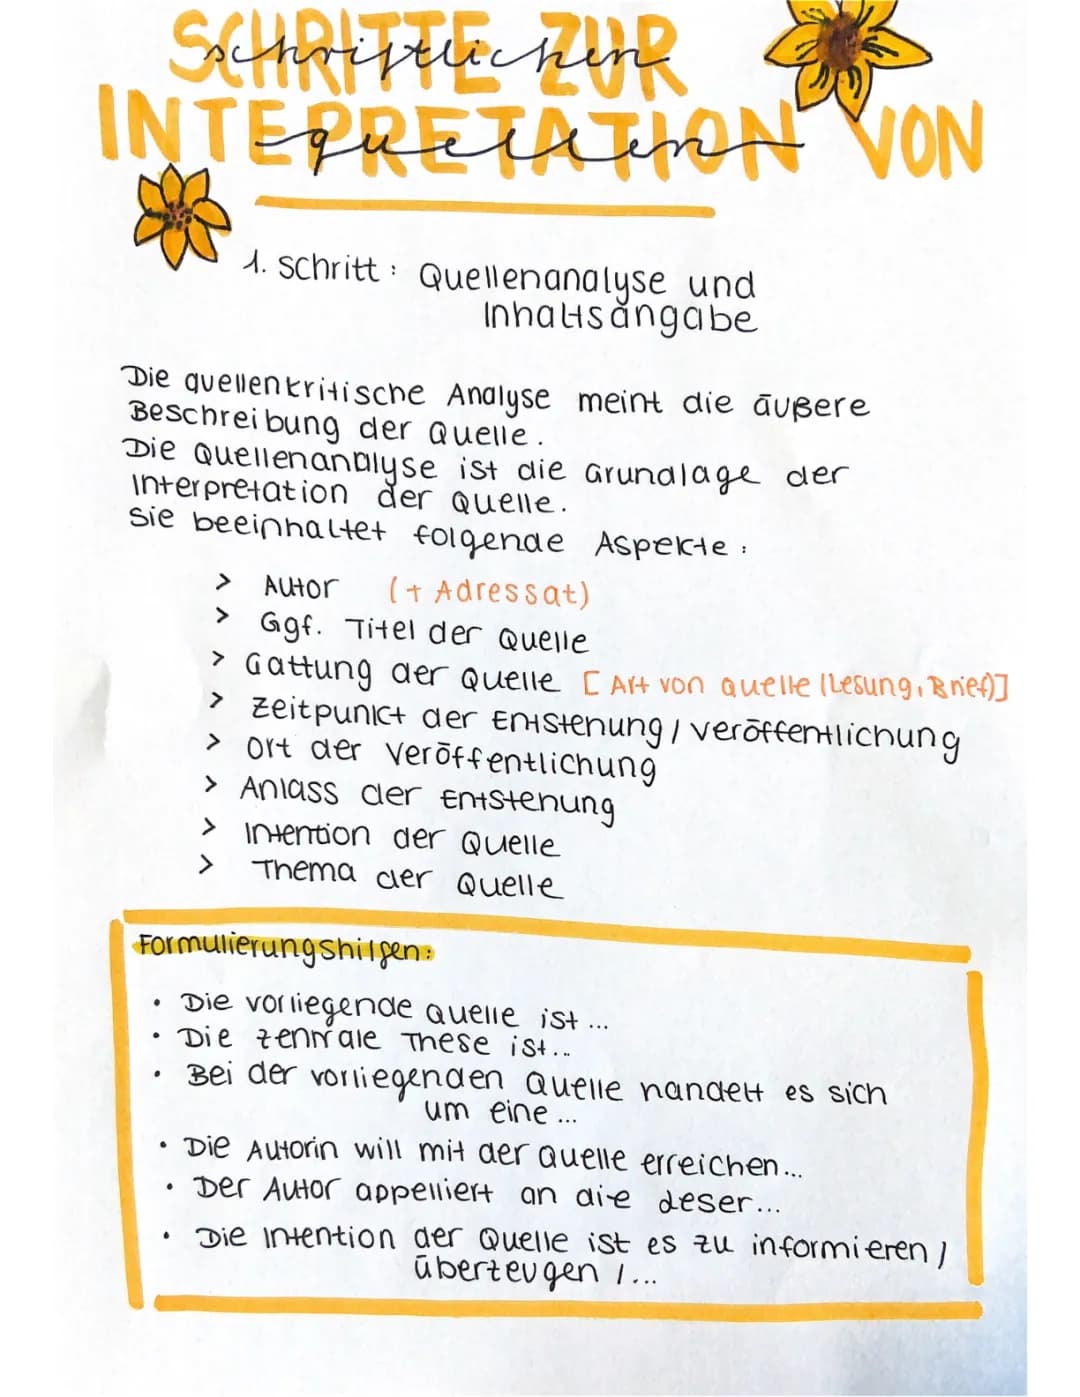 SCHRITTE ZUR
INTEPRETATION VON
schriftlichen
quellen
1. Schritt: Quellenanalyse und
Inhaltsangabe
Die quellenkritische Analyse meint die äußere
Beschreibung der Quelle.
Die Quellenanalyse ist die Grundlage der
Interpretation der Quelle.
Sie beeinhaltet folgende Aspekte:
> Autor (+ Adressat)
> Ggf. Titel der Quelle
> Gattung der Quelle [Art von Quelle (Lesung, Brief)]
> Zeitpunkt der Entstehung / Veröffentlichung
> Ort der Veröffentlichung
> Anlass der Entstehung
> Intention der Quelle
> Thema der Quelle
Formulierungshilfen:
• Die vorliegende Quelle ist...
• Die zentrale These ist...
• Bei der vorliegenden Quelle handelt es sich
um eine...
• Die Autorin will mit der Quelle erreichen...
• Der Autor appelliert an die Leser...
• Die Intention der Quelle ist es zu informieren /
überzeugen /...